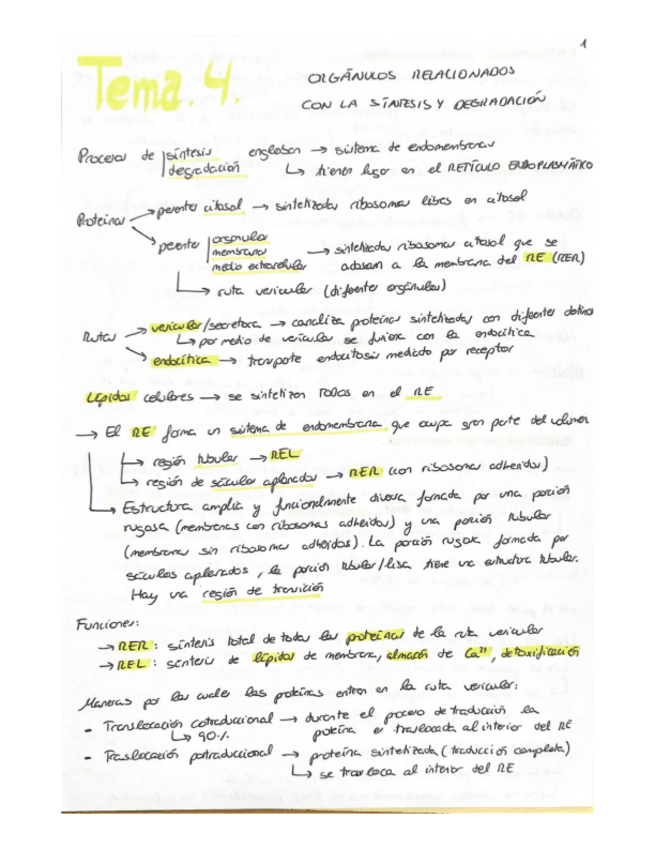 1
Tema.4.
ORGÁNULOS RELACIONADOS
CON LA SÍNTESIS Y DEGRADACIÓN
Procesos de síntesis engloban → sistema de endomembranas
degradación ↳ tienen lugar en el RETÍCULO ENDOPLASMÁTICO
Proteínas → permte citosol → sintetizadas ribosomas libres en citosol
→ permte orgánulo
membrana → sintetizadas ribosomas citosol que se
medio extracelular adosan a la membrana del RE (RER)
↳ ruta vesicular (diferentes orgánulos)
Rutas → vesicular/secretora → canaliza proteínas sintetizadas con diferentes destinos
↳ por medio de vesículas se fusiona con la endocítica
→ endocítica → transporte endocitosis mediado por receptor
Lípidos celulares → se sintetizan TODOS en el RE
→ El RE forma un sistema de endomembrana que ocupa gran parte del volumen
↳ región tubular → REL
↳ región de sáculos aplanados → RER (con ribosomas adheridos)
↳ Estructura amplia y funcionalmente diversa formada por una porción
rugosa (membranas con ribosomas adheridos) y una porción tubular
(membranas sin ribosomas adheridos). La porción rugosa formada por
sáculos aplanados, la porción tubular/lisa tiene una estructura tubular.
Hay una región de transición
Funciones:
→ RER: síntesis total de todas las proteínas de la ruta vesicular
→ REL: síntesis de lípidos de membrana, almacén de Ca²⁺, detoxificación
Maneras por las cuales las proteínas entran en la ruta vesicular:
- Translocación cotraduccional → durante el proceso de traducción la
↳ 90% proteína es traslocada al interior del RE
- Traslocación postraduccional → proteína sintetizada (traducción completa)
↳ se trasloca al interior del RE